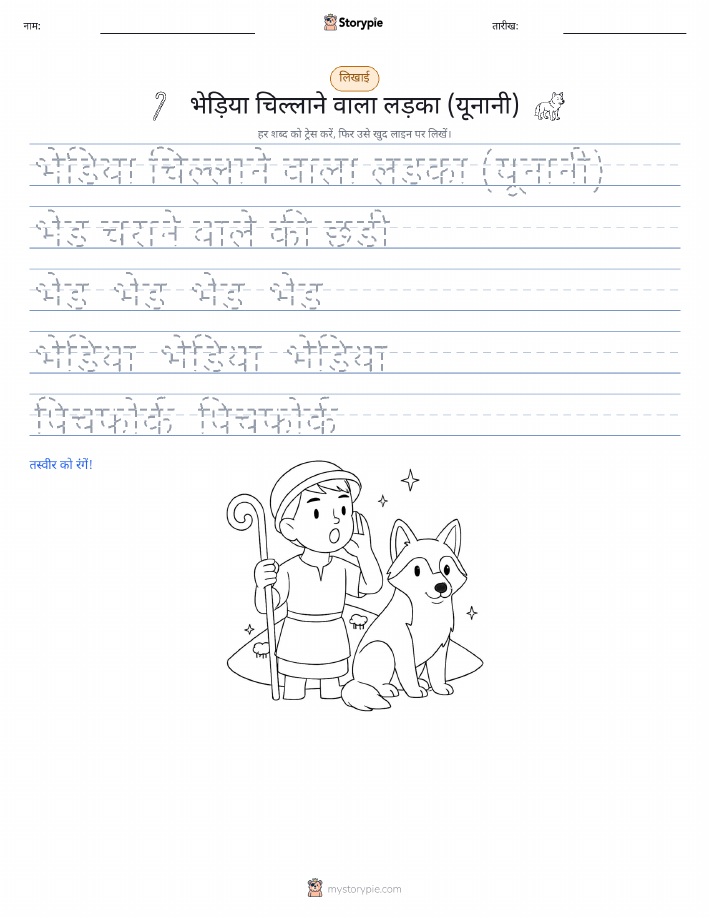 नाम:
Storypie
तारीख:
लिखाई
भेड़िया चिल्लाने वाला लड़का (यूनानी)
हर शब्द को ट्रेस करें, फिर उसे खुद लाइन पर लिखें।
भेड़िया चिल्लाने वाला लड़का (यूनानी)
भेड़ चराने वाले की छड़ी
भेड़ भेड़ भेड़ भेड़
भेड़िया भेड़िया भेड़िया
पिचफोर्क पिचफोर्क
तस्वीर को रंगें!
mystorypie.com